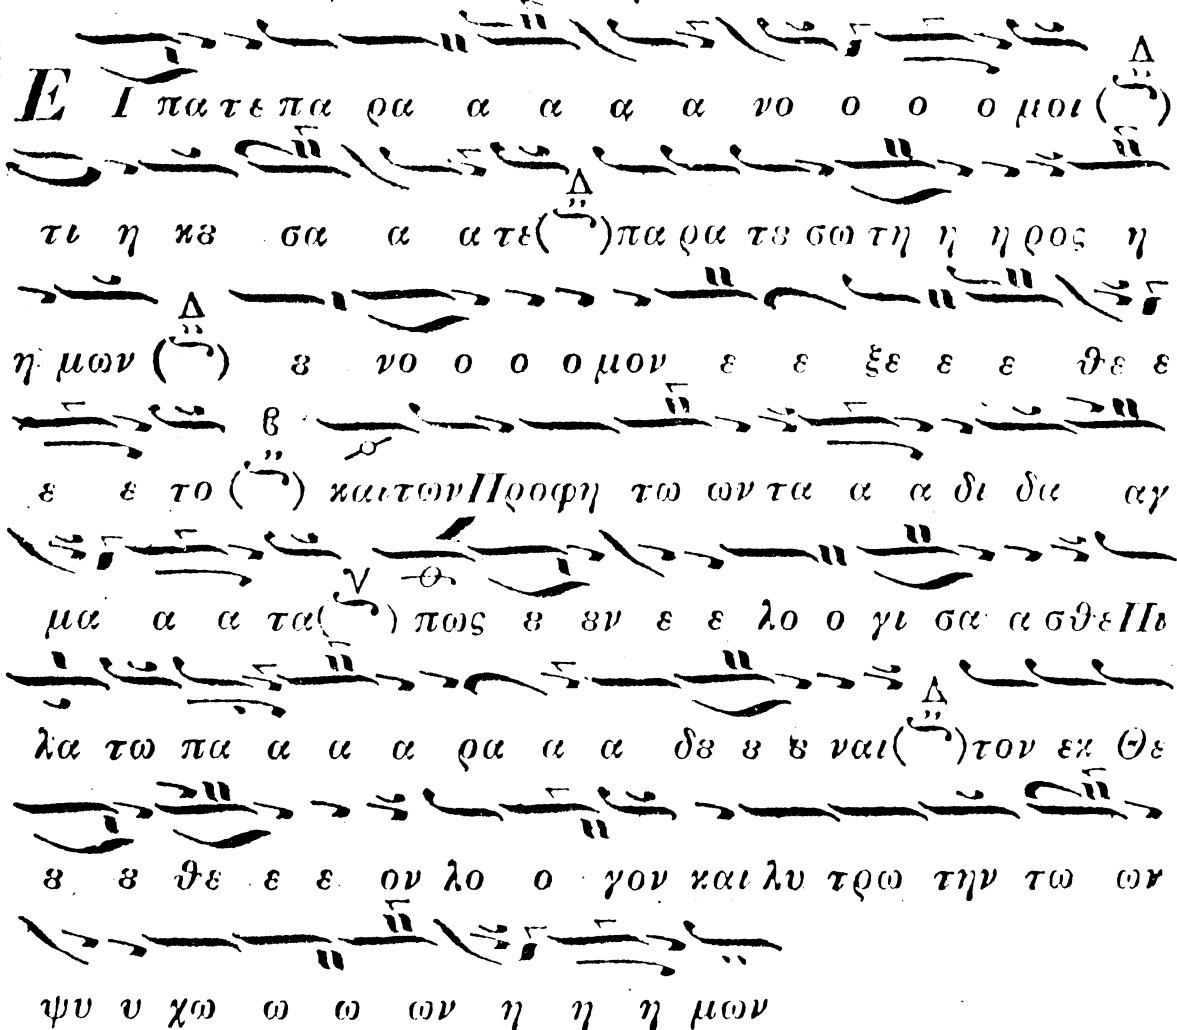 Ε Ι πα τε πα ρα α α α α νο ο ο ο μοι (Δ)
τι η κȣ σα α α τε (Δ) πα ρα τȣ σω τη η η ρος η
η μων (Δ) ȣ νο ο ο ο μον ε ε ξε ε ε θε ε
ε ε το (β) και των Προφη τω ων τα α α δι δα αγ
μα α α τα (ν) πως ȣ ȣν ε ε λο ο γι σα α σθε Πι
λα τω πα α α α ρα α α δȣ ȣ ȣ ναι (Δ) τον εκ Θε
ȣ ȣ θε ε ε ον λο ο γον και λυ τρω την τω ων
ψυ υ χω ω ω ων η η η μων